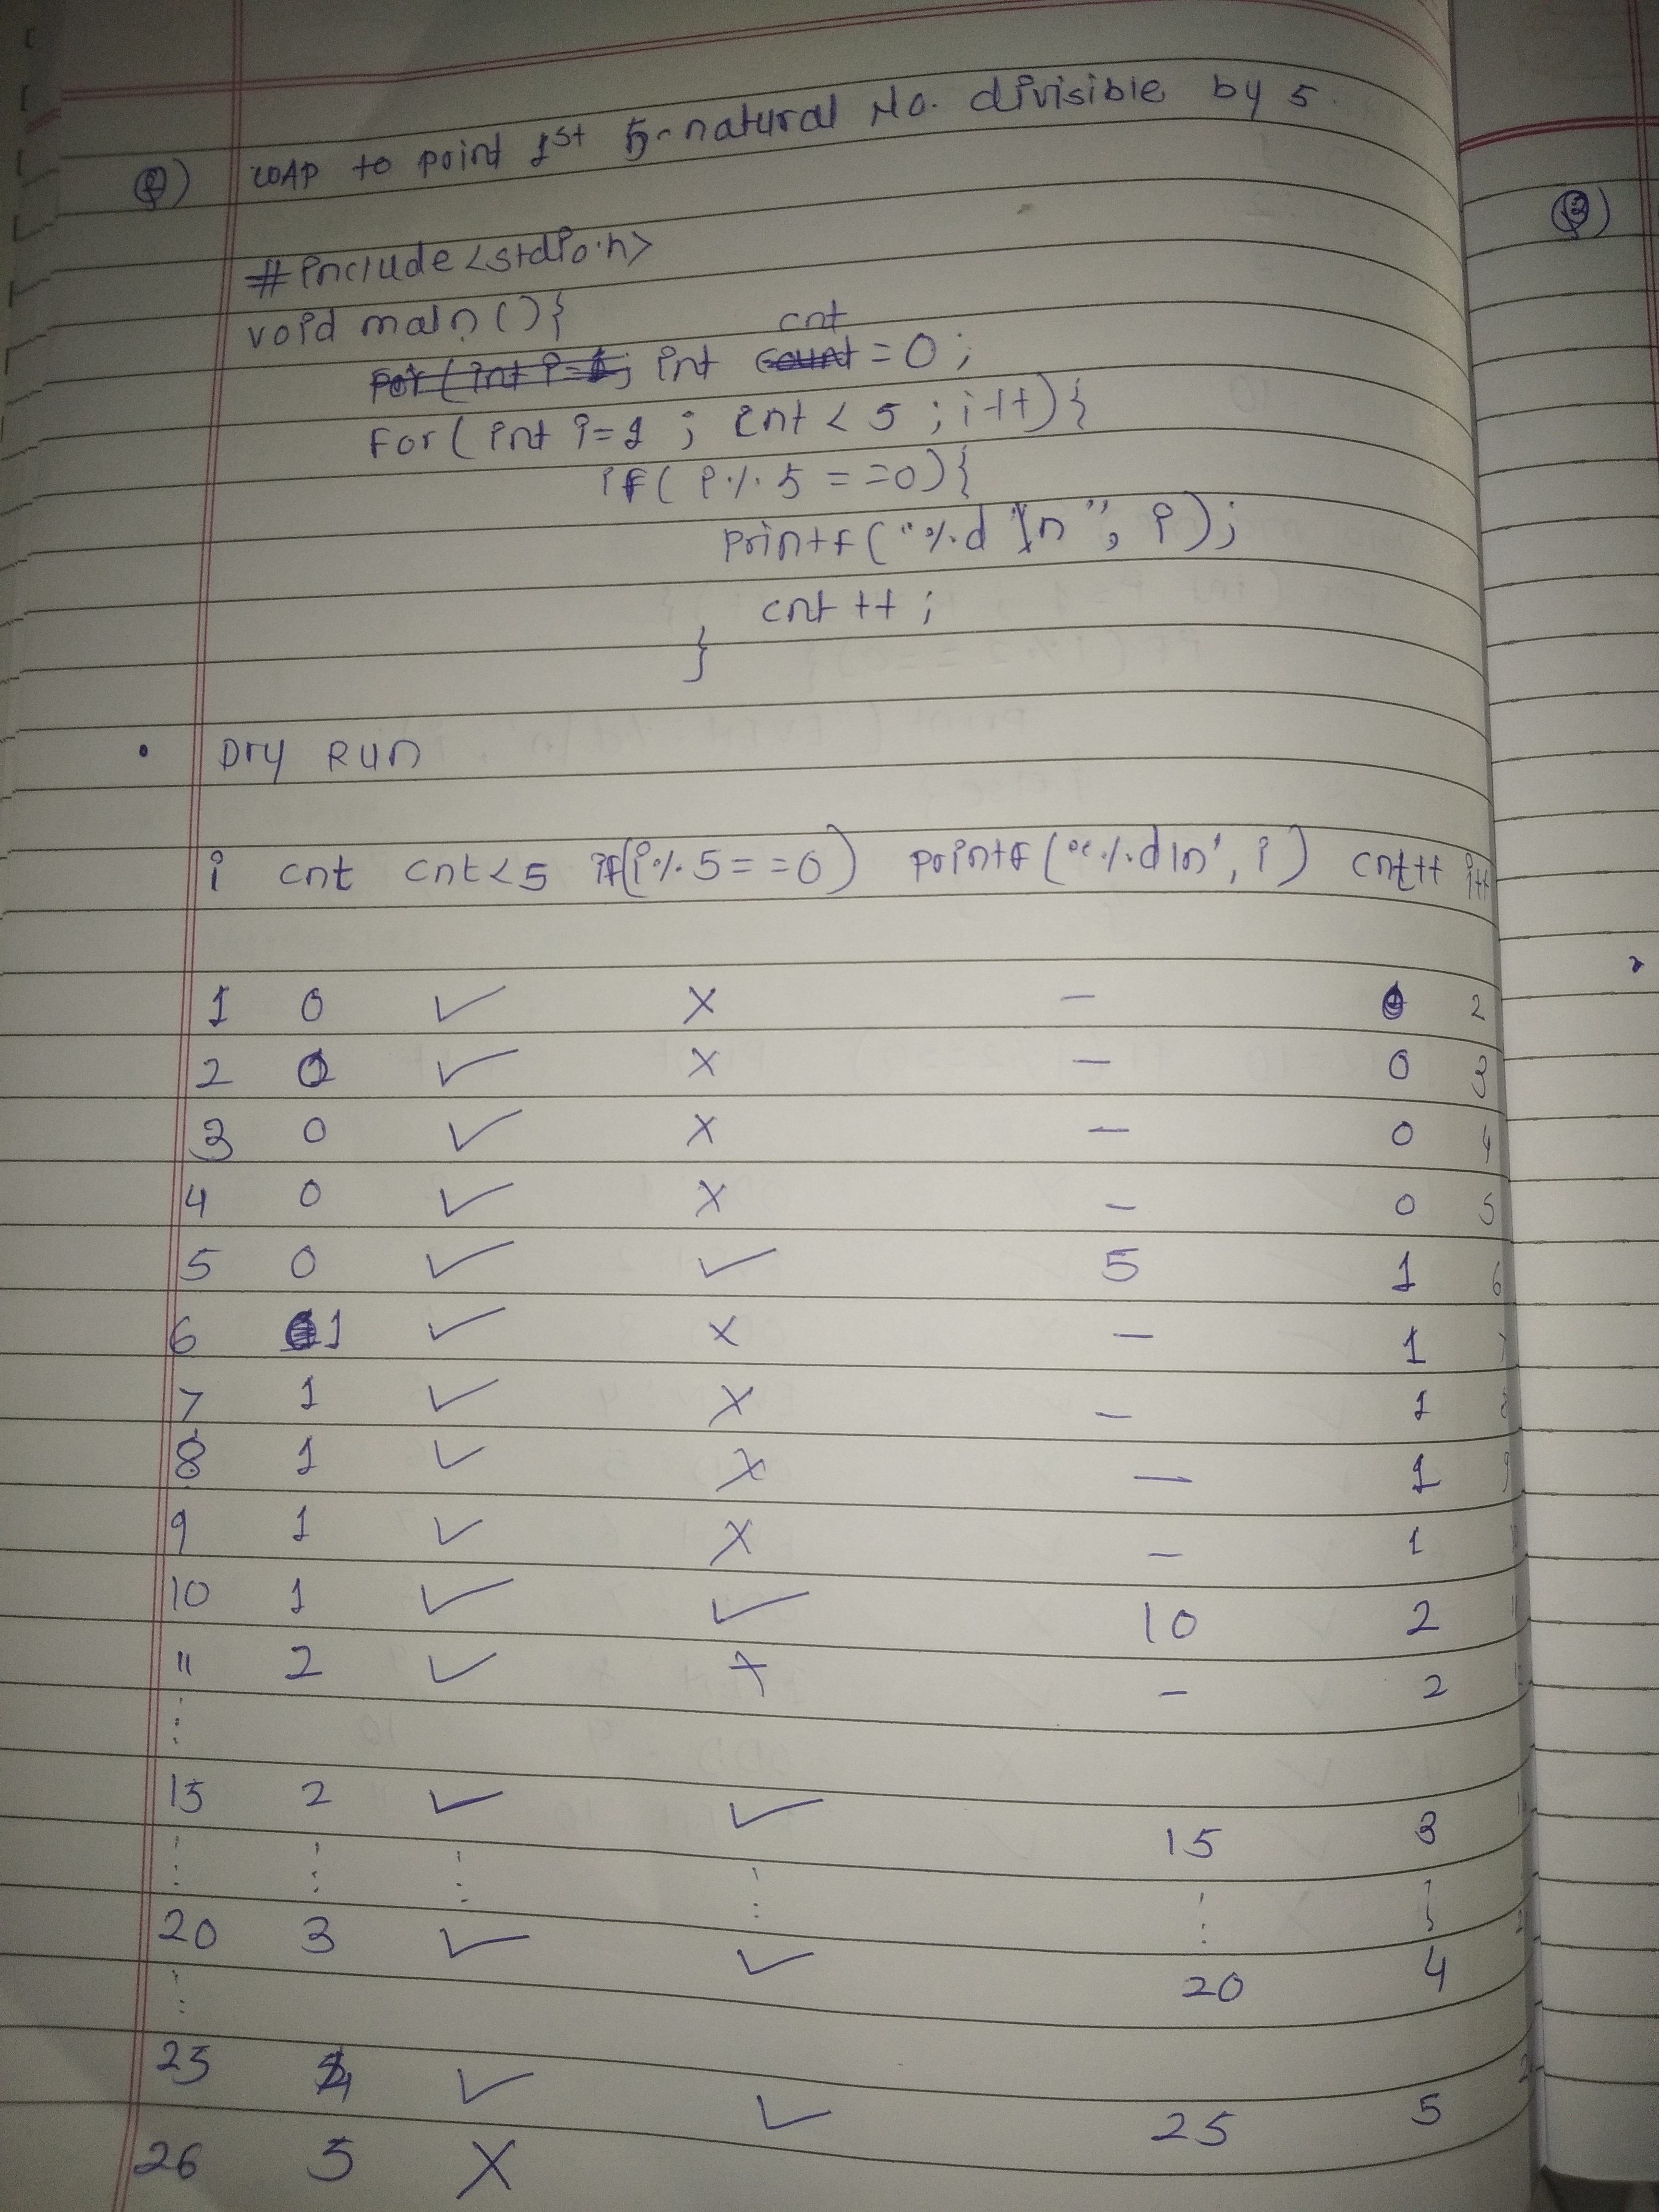 Q) WAP to print 1st 5-natural No. divisible by 5.
#include<stdio.h>
void main(){
for(int i=1; int count cnt = 0;
for( int i=1 ; cnt < 5 ; i++){
if( i % 5 = =0){
printf("%d \n", i);
cnt ++ ;
}
• Dry Run
i cnt cnt<5 if(i%5==0) printf("%d\n", i) cnt++ i++
1 0 ✓ × – 0 2
2 0 ✓ × – 0 3
3 0 ✓ × – 0 4
4 0 ✓ × – 0 5
5 0 ✓ ✓ 5 1 6
6 1 ✓ × – 1 7
7 1 ✓ × – 1 8
8 1 ✓ × – 1 9
9 1 ✓ × – 1 10
10 1 ✓ ✓ 10 2 11
11 2 ✓ × – 2
⋮
15 2 ✓ ✓ 15 3
⋮ ⋮ ⋮ ⋮ ⋮ ⋮
20 3 ✓ ✓ 20 4
⋮
25 4 ✓ ✓ 25 5
26 5 ×
Q)